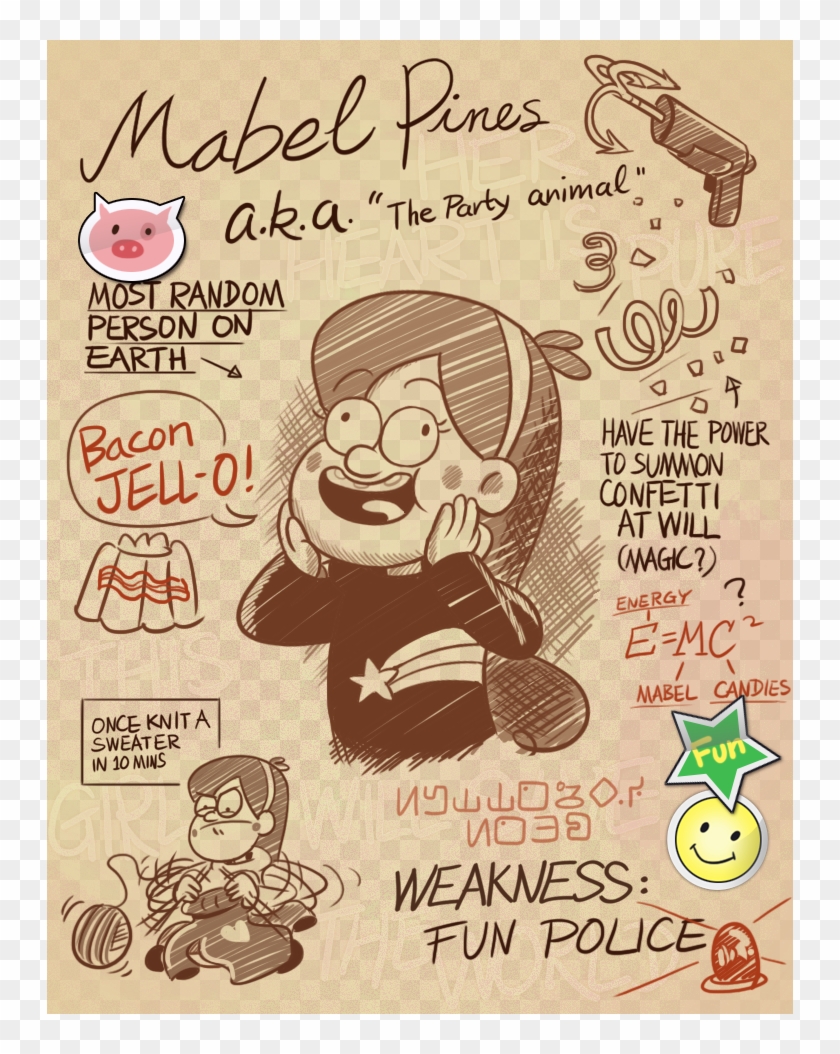 Mabel Pines
a.k.a. "The Party animal"
MOST RANDOM
PERSON ON
EARTH
Bacon
JELL-O!
HAVE THE POWER
TO SUMMON
CONFETTI
AT WILL
(MAGIC?)
ENERGY
?
E=MC²
MABEL CANDIES
Fun
ONCE KNIT A
SWEATER
IN 10 MINS
WEAKNESS:
FUN POLICE
HER
HEART IS PURE
THIS
GIRL WILL
THE
WORLD